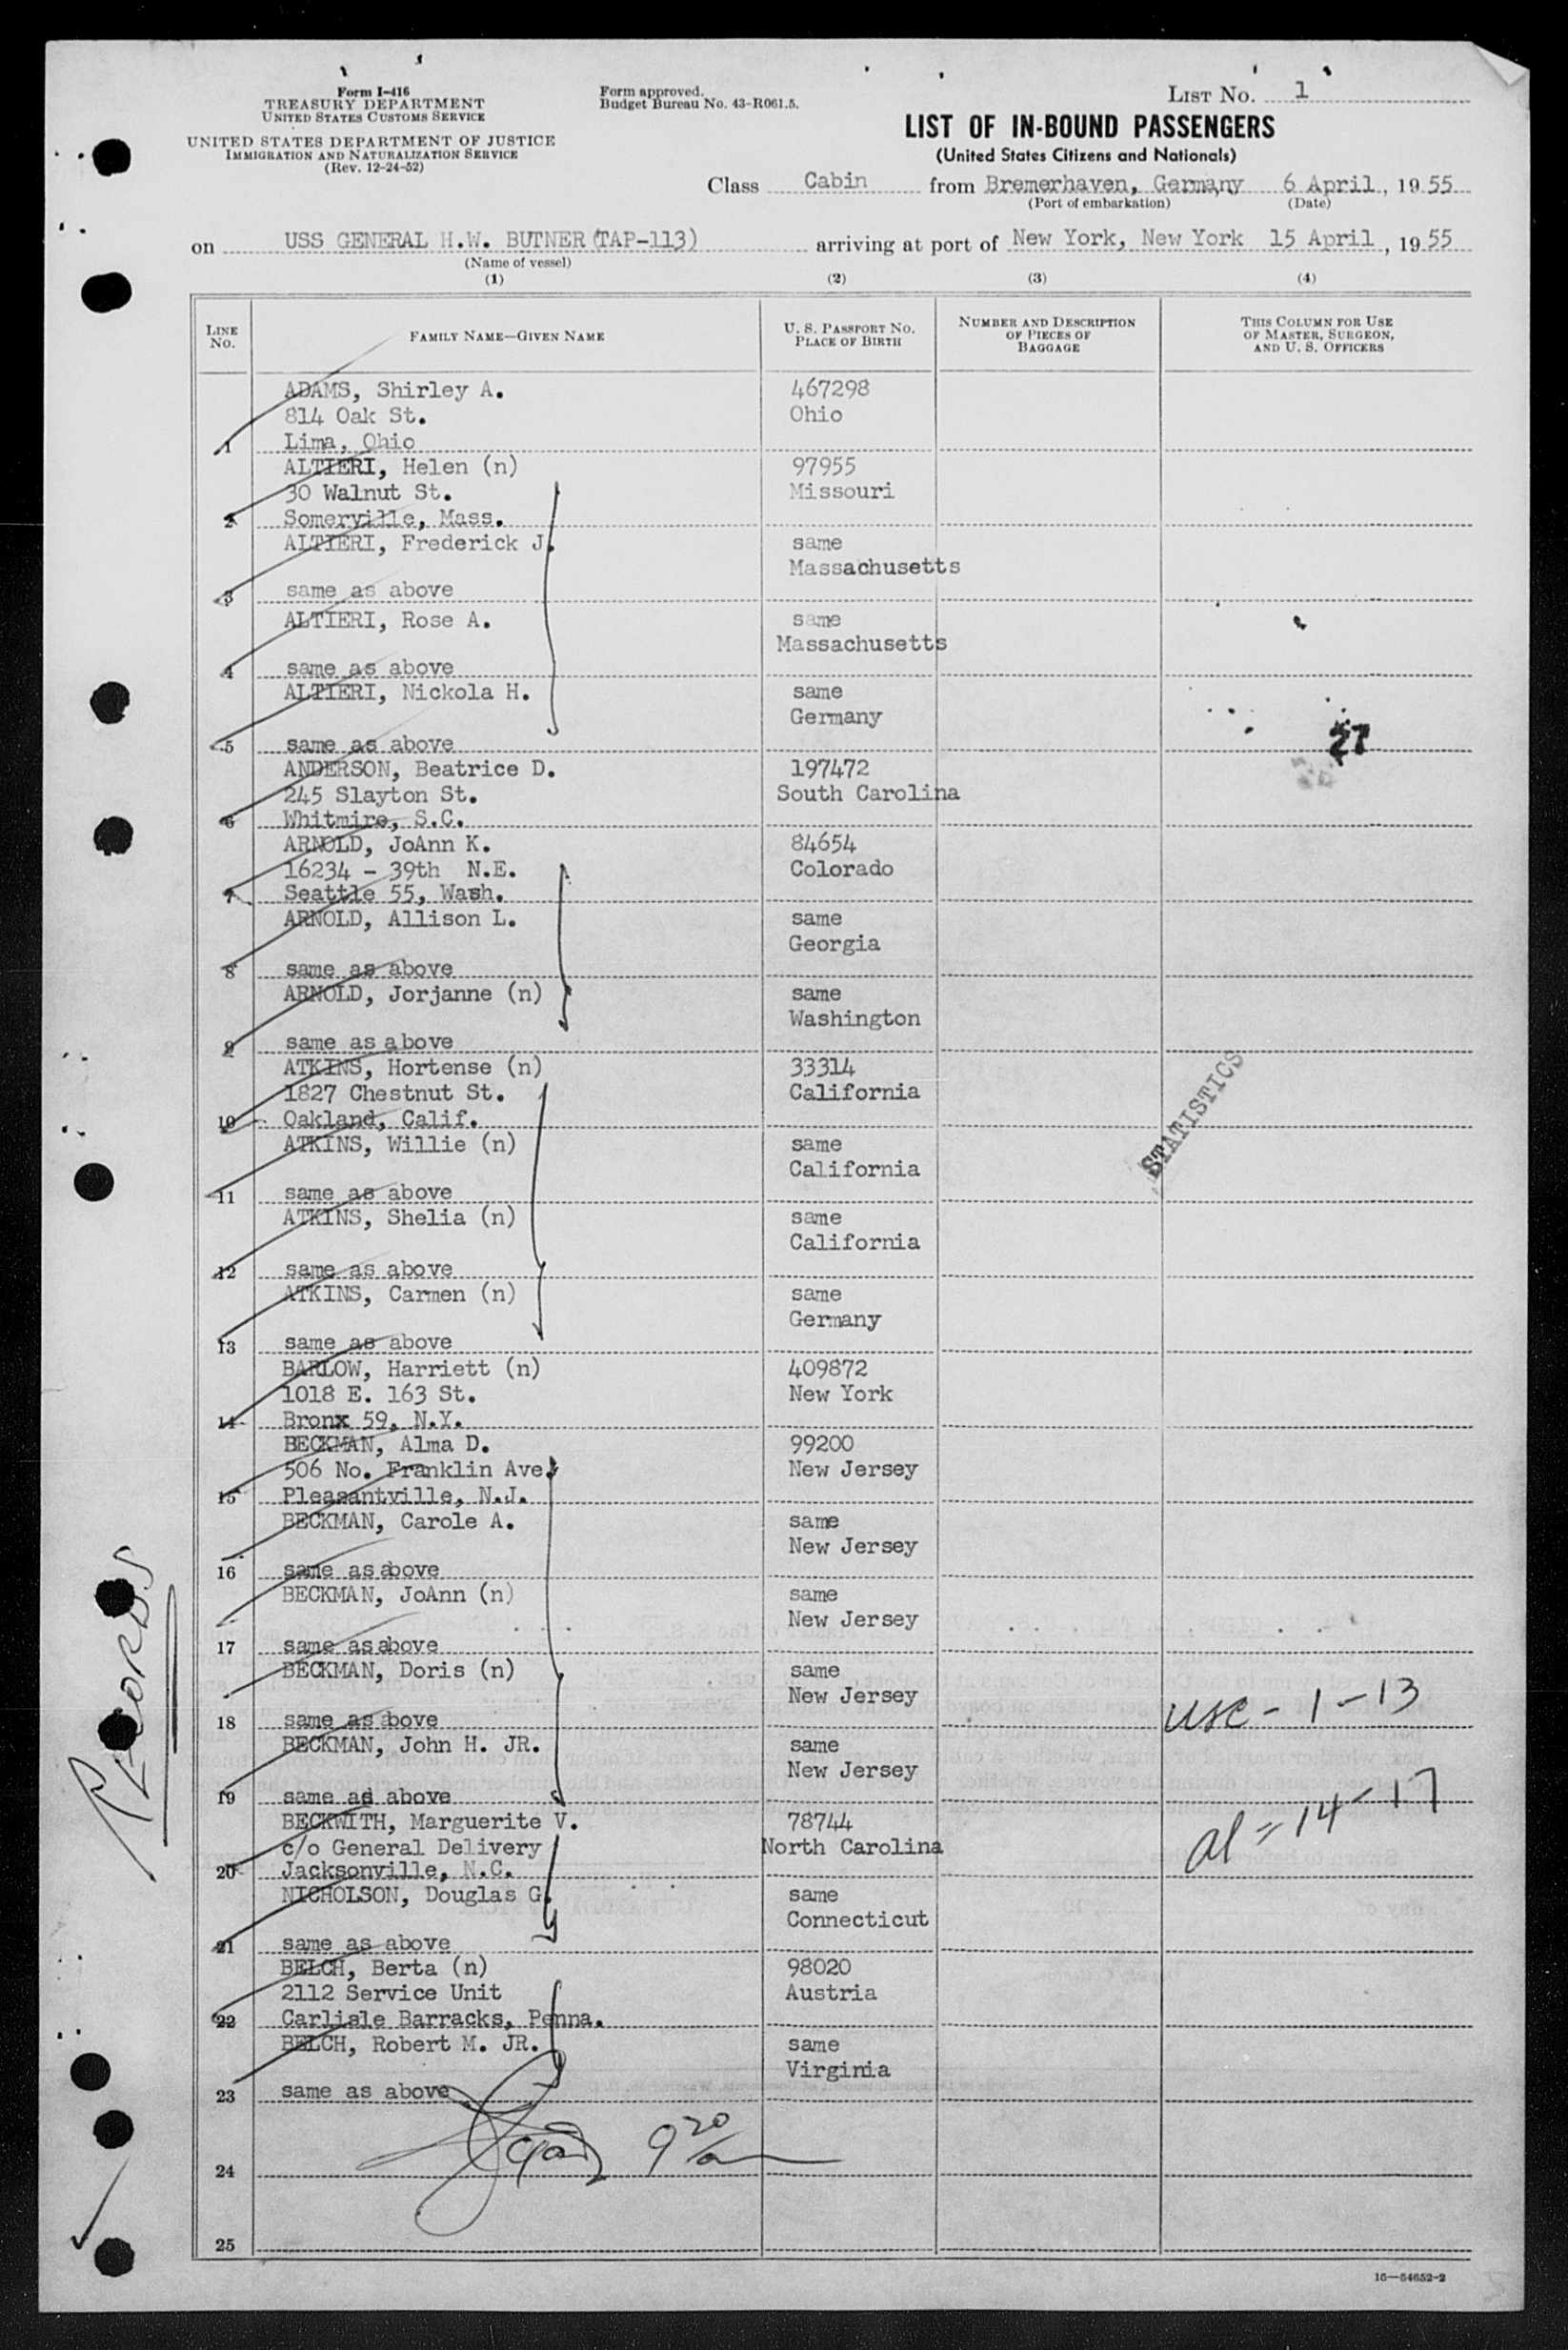 Form I-416
TREASURY DEPARTMENT
UNITED STATES CUSTOMS SERVICE
UNITED STATES DEPARTMENT OF JUSTICE
IMMIGRATION AND NATURALIZATION SERVICE
(Rev. 12-24-52)
Form approved.
Budget Bureau No. 43-R061.5.
LIST No. 1
LIST OF IN-BOUND PASSENGERS
(United States Citizens and Nationals)
Class Cabin from Bremerhaven, Germany 6 April, 1955
(Port of embarkation) (Date)
on USS GENERAL H.W. BUTNER (TAP-113) arriving at port of New York, New York 15 April, 1955
(Name of vessel)
(1) (2) (3) (4)
LINE No.
FAMILY NAME—GIVEN NAME
U. S. PASSPORT No.
PLACE OF BIRTH
NUMBER AND DESCRIPTION
OF PIECES OF
BAGGAGE
THIS COLUMN FOR USE
OF MASTER, SURGEON,
AND U. S. OFFICERS
ADAMS, Shirley A. 467298
814 Oak St. Ohio
1 Lima, Ohio
ALTIERI, Helen (n) 97955
30 Walnut St. Missouri
2 Somerville, Mass.
ALTIERI, Frederick J. same
Massachusetts
3 same as above
ALTIERI, Rose A. same
Massachusetts
4 same as above
ALTIERI, Nickola H. same
Germany
27
5 same as above
ANDERSON, Beatrice D. 197472
245 Slayton St. South Carolina
6 Whitmire, S.C.
ARNOLD, JoAnn K. 84654
16234 - 39th N.E. Colorado
7 Seattle 55, Wash.
ARNOLD, Allison L. same
Georgia
8 same as above
ARNOLD, Jorjanne (n) same
Washington
9 same as above
ATKINS, Hortense (n) 33314
1827 Chestnut St. California
10 Oakland, Calif.
STATISTICS
ATKINS, Willie (n) same
California
11 same as above
ATKINS, Shelia (n) same
California
12 same as above
ATKINS, Carmen (n) same
Germany
13 same as above
BARLOW, Harriett (n) 409872
1018 E. 163 St. New York
14 Bronx 59, N.Y.
BECKMAN, Alma D. 99200
506 No. Franklin Ave. New Jersey
15 Pleasantville, N.J.
BECKMAN, Carole A. same
New Jersey
16 same as above
BECKMAN, JoAnn (n) same
New Jersey
17 same as above
BECKMAN, Doris (n) same
New Jersey
usc - 1 - 13
18 same as above
BECKMAN, John H. JR. same
New Jersey
19 same as above
al = 14 - 17
BECKWITH, Marguerite V. 78744
c/o General Delivery North Carolina
20 Jacksonville, N.C.
NICHOLSON, Douglas G. same
Connecticut
21 same as above
BELCH, Berta (n) 98020
2112 Service Unit Austria
22 Carlisle Barracks, Penna.
BELCH, Robert M. JR. same
Virginia
23 same as above
9 20
24
25
RECORDS
16—54652-2